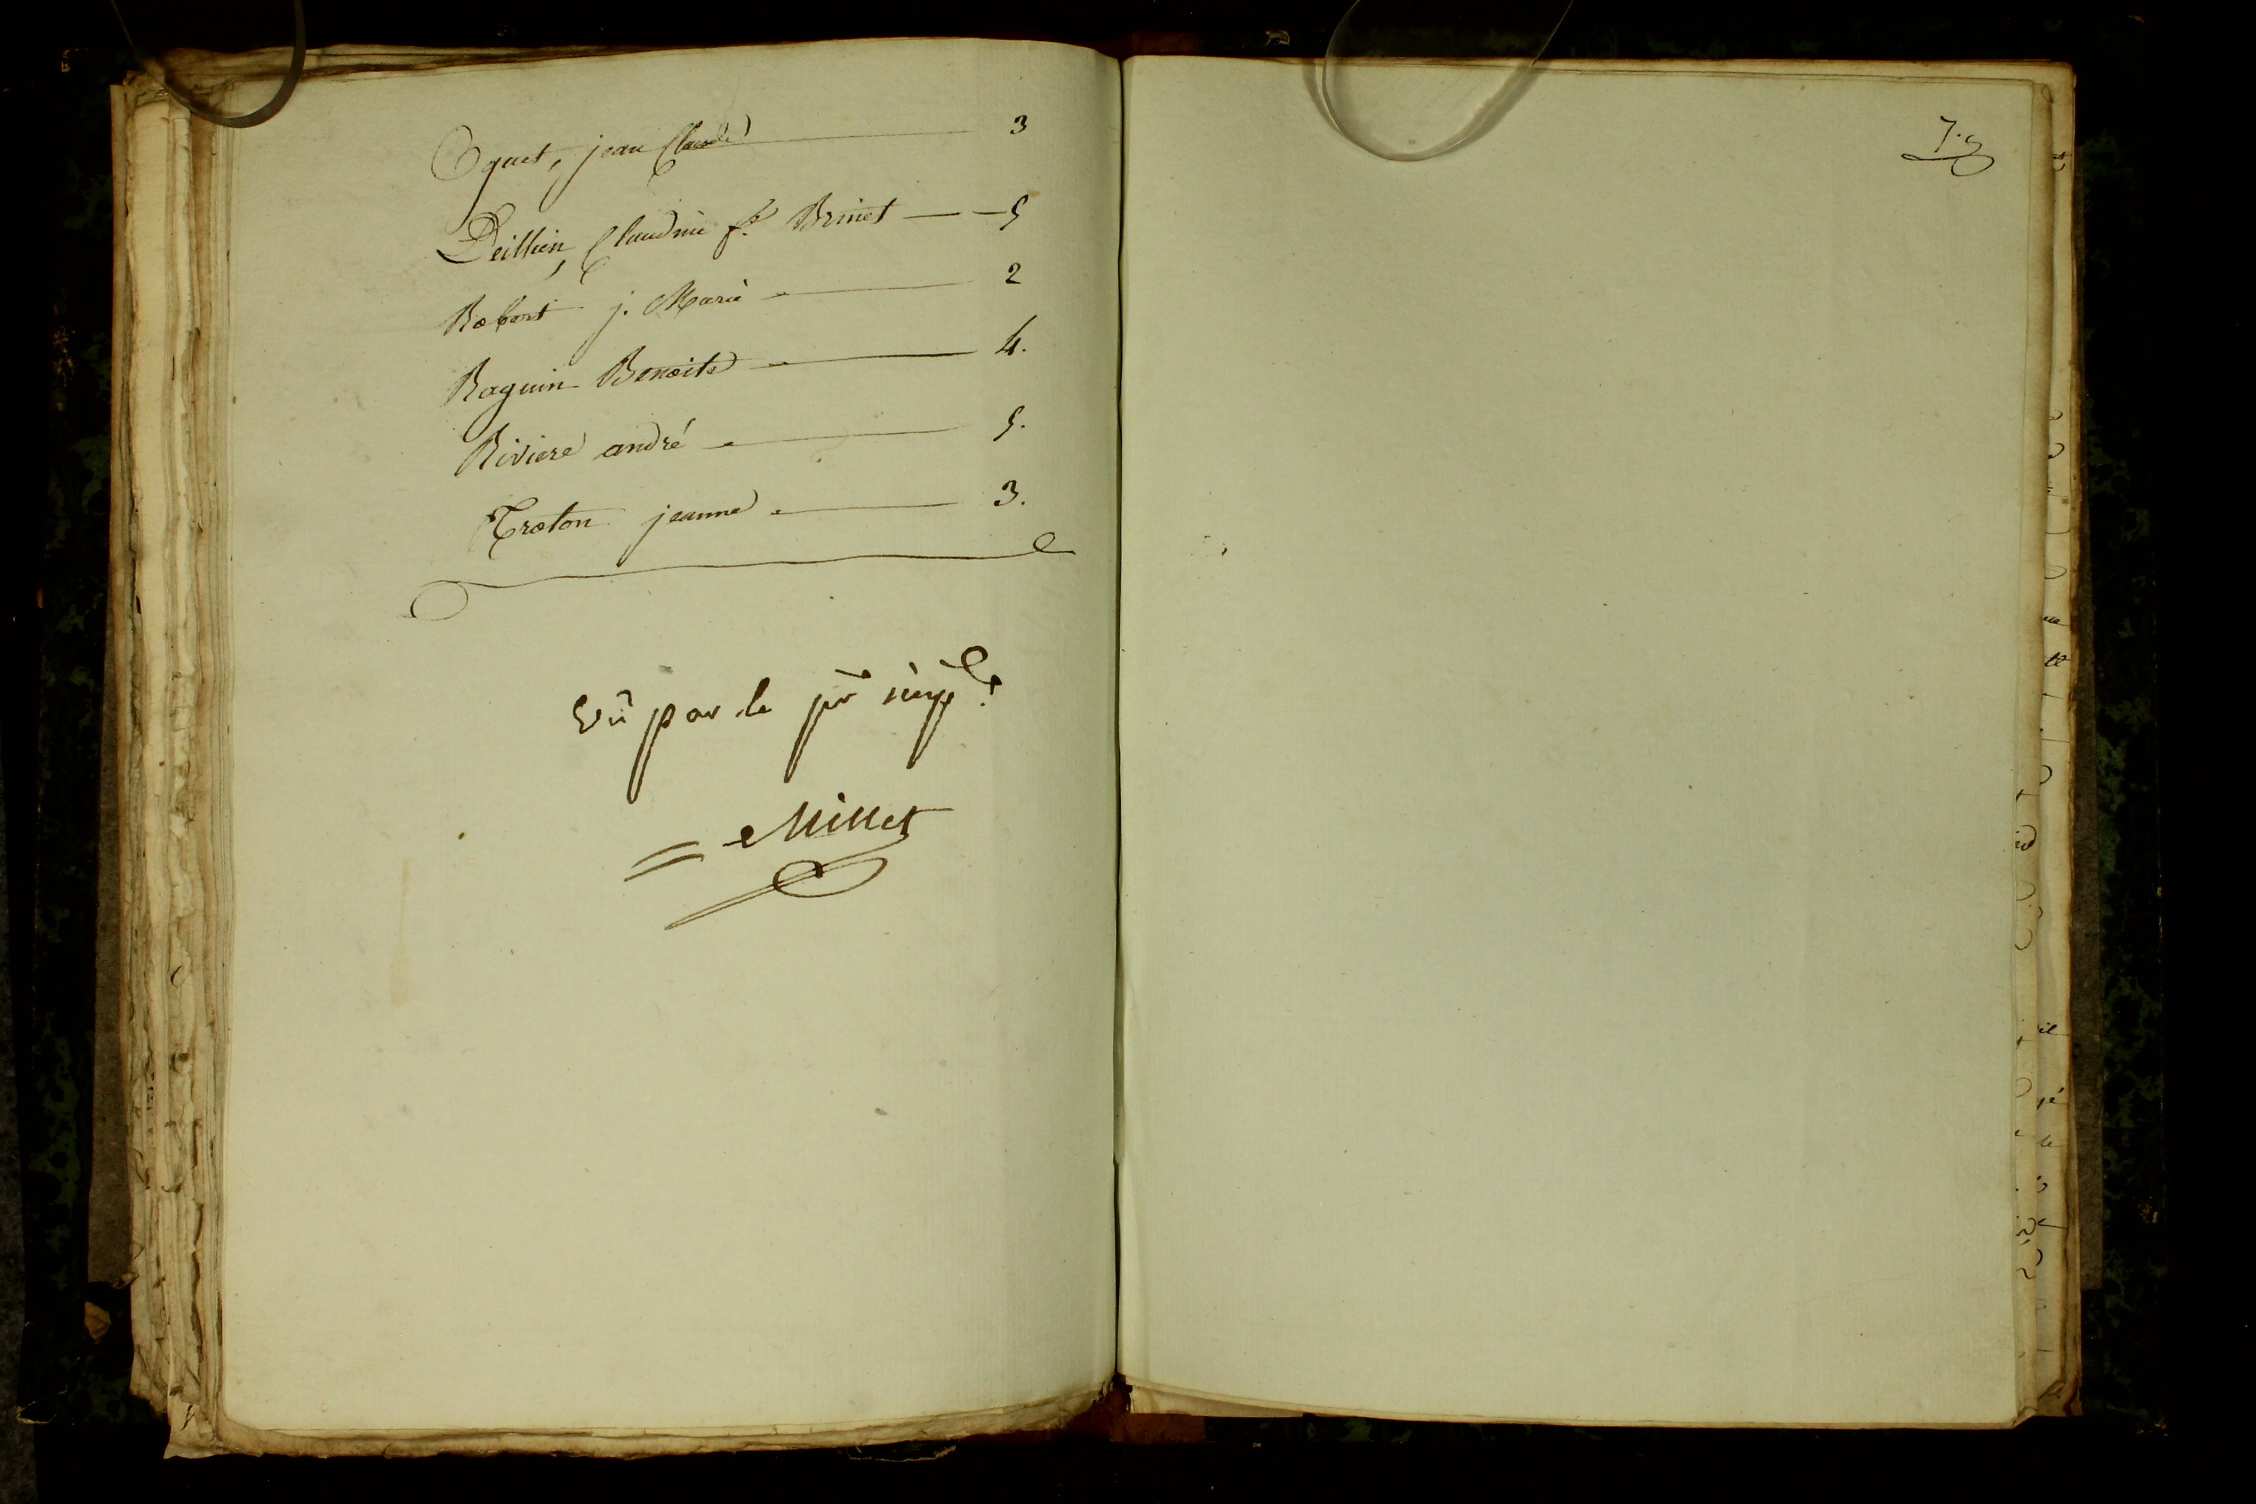 Oguet, jean Claude 3
Peillien, Claudine fe. Brinet 5
Robert j. Marie 2
Raguin Benoite 4.
Riviere andré 5.
Troton jeanne 3.
Vû par le
Millet